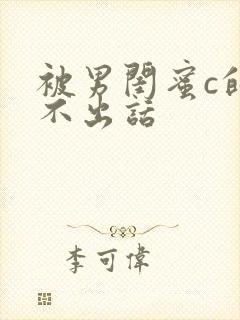 被男閨蜜c的
不出話
李可偉